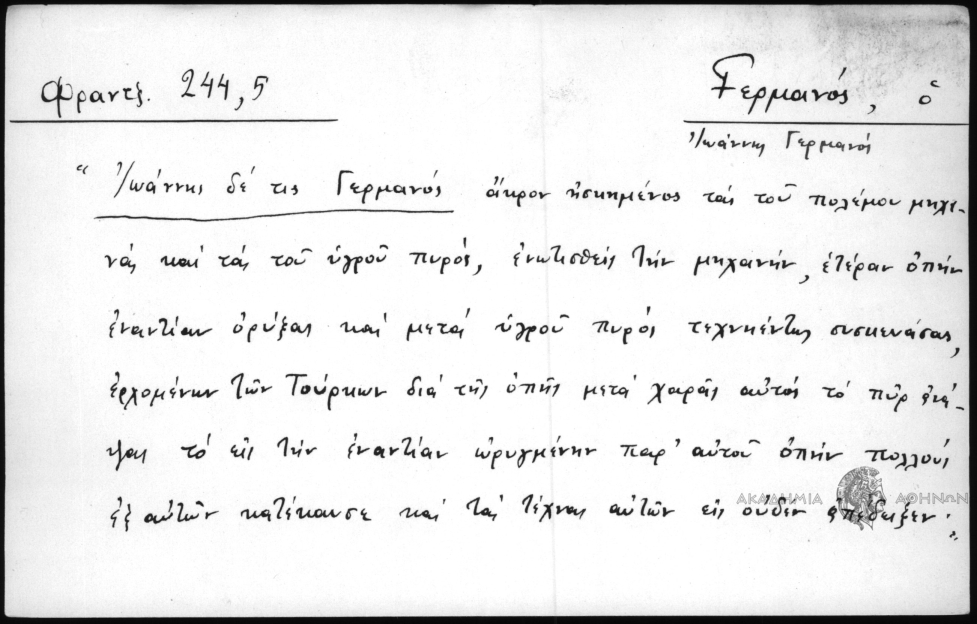 Φραντζ. 244,5
Γερμανός, ὁ
Ἰωάννης Γερμανός
“ Ἰωάννης δέ τις Γερμανός ἄκρον ἠσκημένος τάς τοῦ πολέμου μηχα-
νάς καί τάς τοῦ ὑγροῦ πυρός, ἐνωτισθείς τήν μηχανήν, ἑτέραν ὀπήν
ἐναντίαν ὀρύξας καί μετά ὑγροῦ πυρός τεχνηέντως συσκευάσας,
ἐρχομένων τῶν Τούρκων διά τῆς ὀπῆς μετά χαρᾶς αὐτός τό πῦρ ἀνά-
ψας τό εἰς τήν ἐναντίαν ὠρυγμένην παρ’ αὐτοῦ ὀπήν πολλούς
ἐξ αὐτῶν κατέκαυσε καί τάς τέχνας αὐτῶν εἰς οὐδέν ἐπέδειξεν·”
ΑΚΑΔΗΜΙΑ ΑΘΗΝΩΝ